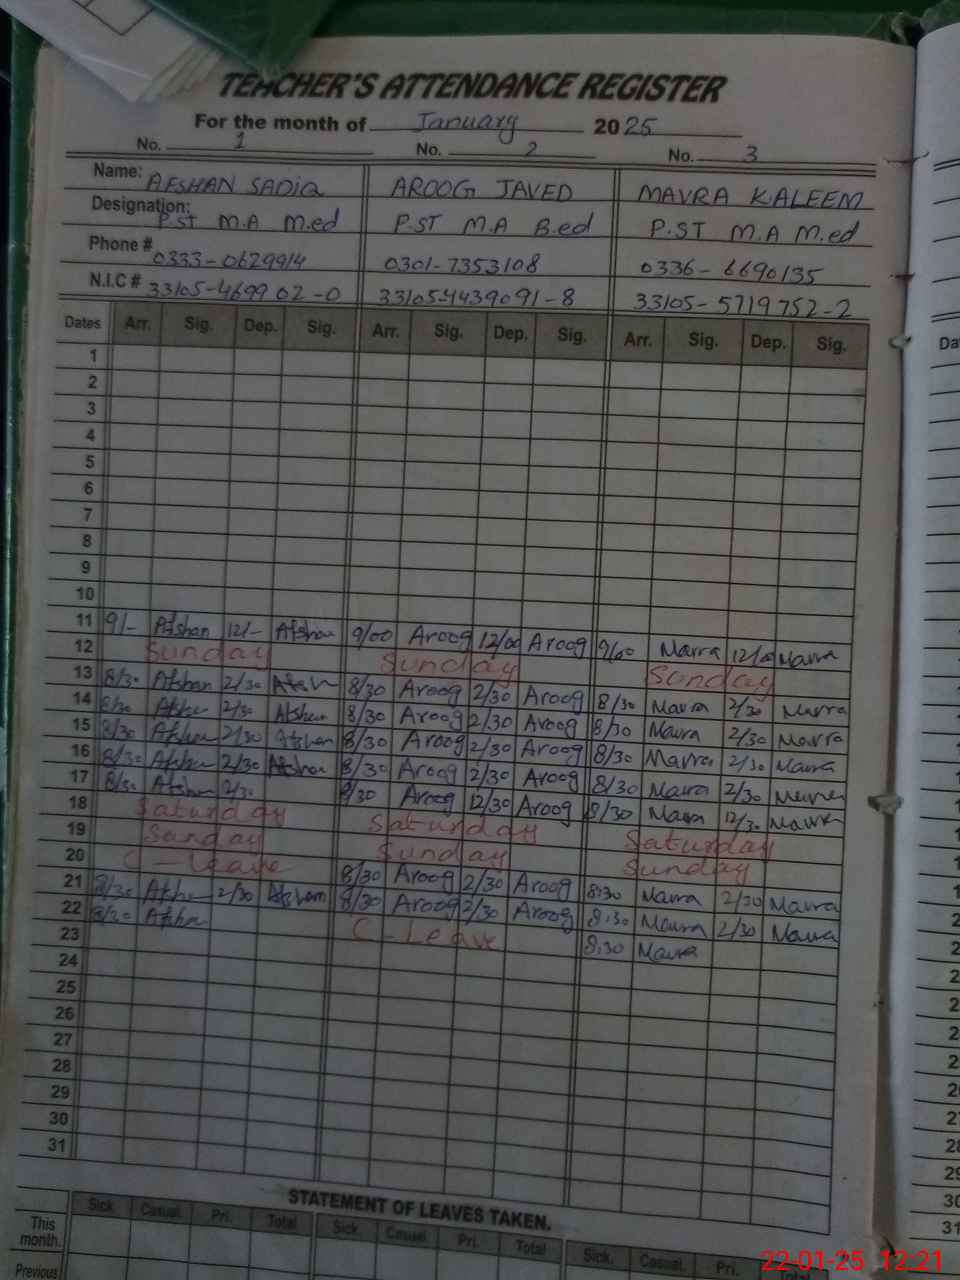 TEACHER'S ATTENDANCE REGISTER
For the month of January 2025
No. 1 No. 2 No. 3
Name: AFSHAN SADIQ AROOG JAVED MAVRA KALEEM
Designation: P.ST M.A M.ed P.ST M.A B.ed P.ST M.A M.ed
Phone # 0333-0629914 0301-7353108 0336-6690135
N.I.C # 33105-4699 02-0 33105-4439091-8 33105-5719752-2
Dates Arr. Sig. Dep. Sig. Arr. Sig. Dep. Sig. Arr. Sig. Dep. Sig.
1
2
3
4
5
6
7
8
9
10
11 9/- Afshan 12/- Afshan 9/00 Aroog 12/00 Aroog 9/00 Mavra 12/00 Mavra
12 Sunday Sunday Sunday
13 8/30 Afshan 2/30 Afshan 8/30 Aroog 2/30 Aroog 8/30 Mavra 2/30 Mavra
14 8/30 Afshan 2/30 Afshan 8/30 Aroog 2/30 Aroog 8/30 Mavra 2/30 Mavra
15 8/30 Afshan 2/30 Afshan 8/30 Aroog 2/30 Aroog 8/30 Mavra 2/30 Mavra
16 8/30 Afshan 2/30 Afshan 8/30 Aroog 2/30 Aroog 8/30 Mavra 2/30 Mavra
17 8/30 Afshan 2/30 8/30 Aroog 12/30 Aroog 8/30 Mavra 12/30 Mavra
18 Saturday Saturday Saturday
19 Sunday Sunday Sunday
20 C-Leave 8/30 Aroog 2/30 Aroog 8:30 Mavra 2/30 Mavra
21 8/30 Afshan 2/30 Afshan 8/30 Aroog 2/30 Aroog 8:30 Mavra 2/30 Mavra
22 8/30 Afshan C-Leave 8:30 Mavra
23
24
25
26
27
28
29
30
31
STATEMENT OF LEAVES TAKEN.
Sick Casual Pri. Total Sick Casual Pri. Total Sick. Casual. Pri.
This month.
Previous
22-01-25 12:21